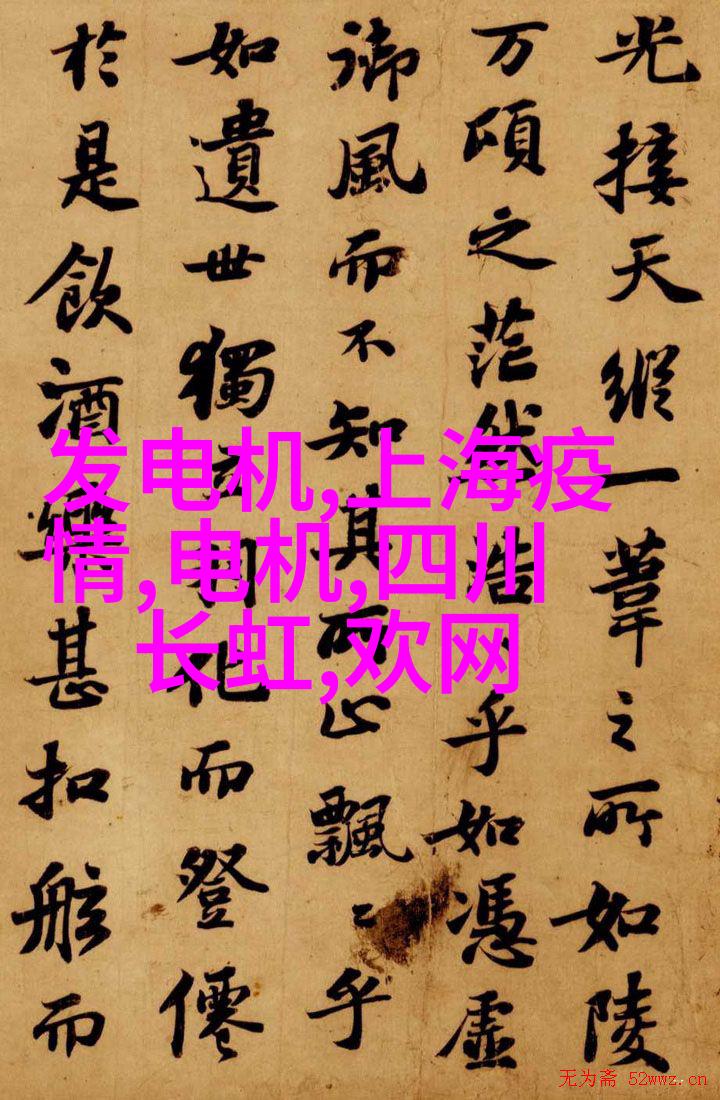 光接天縱一葦之所如陵
万頃之茫然浩〻乎如憑虛
御風而不知其所止飄〻乎
如遺世獨立羽化而登僊
於是飲酒樂甚扣舷而
发电机,上海疫
情,电机,四川
长虹,欢网
无为斋 52wwz.cn